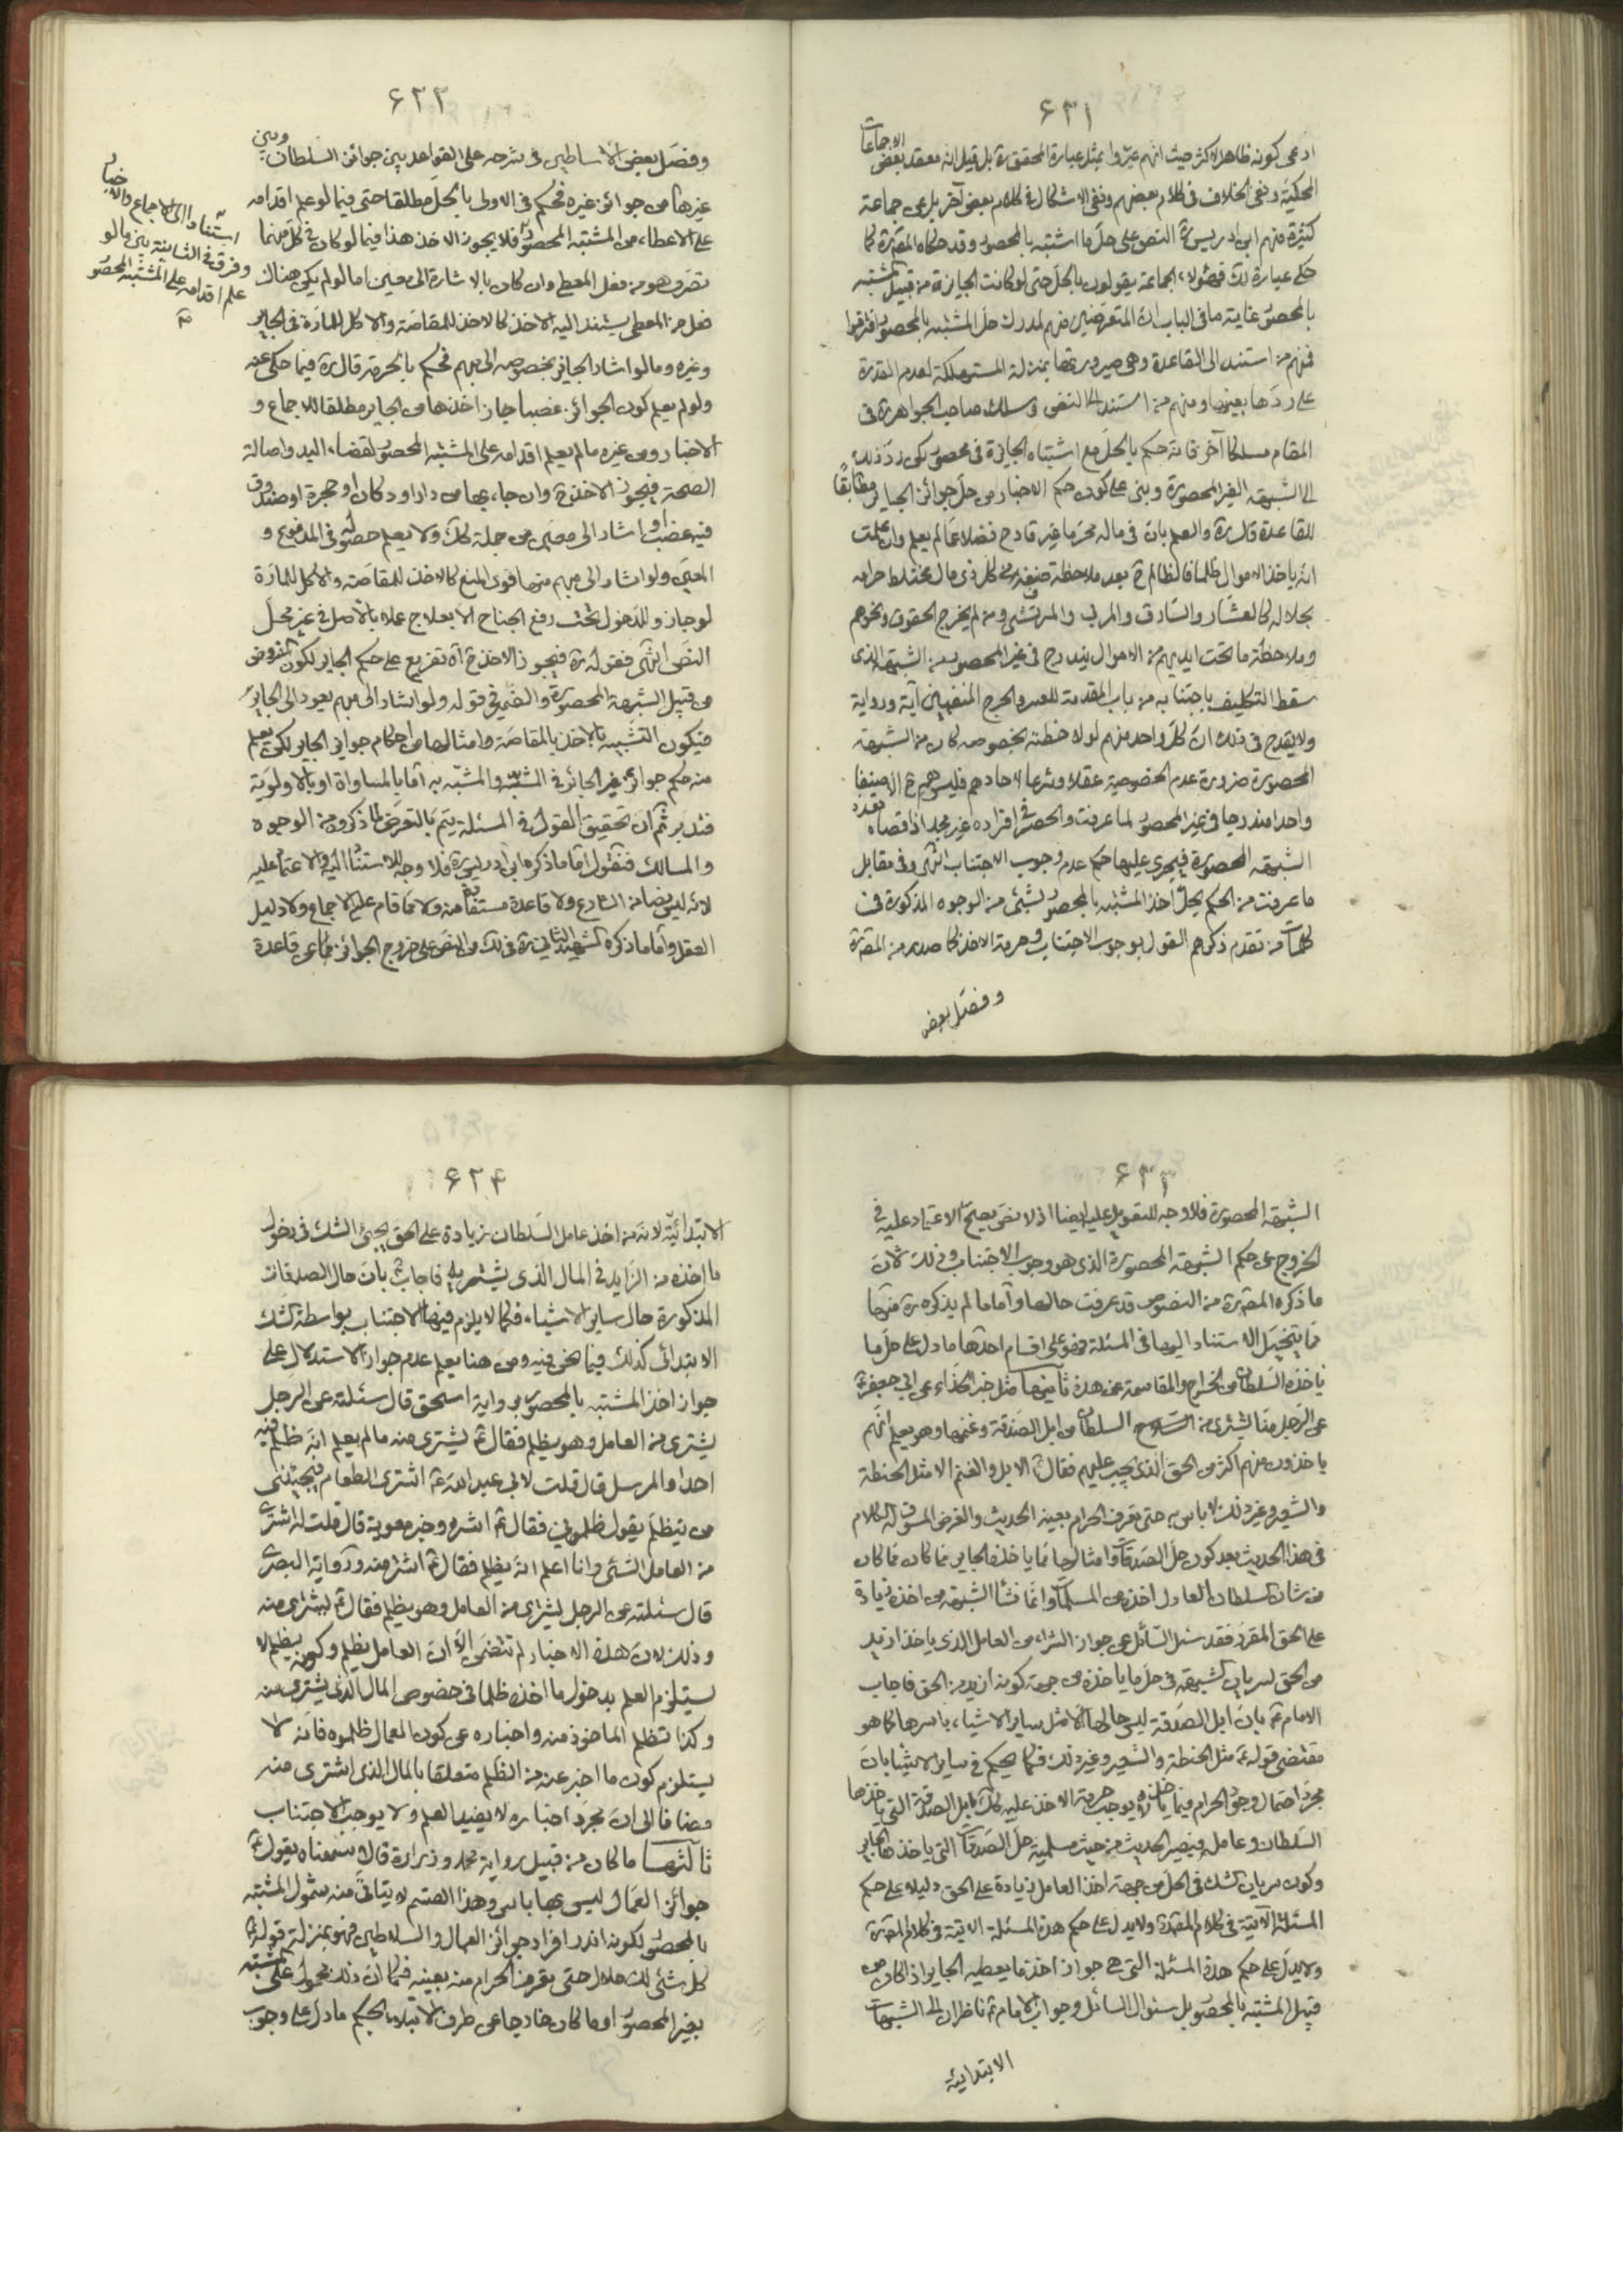 ۶۳۱
ادعى كونه ظاهر الاكثر حيث انهم عبّروا بمثل عبارة المحقق ره بل قيل انه معقد بعض الاجماعات
المحكية ونفى الخلاف فى كلام بعضهم ونفى الاشكال فى كلام بعض آخر بل عن جماعة
كثيرة منهم ابن ادريس ره النص على حل ما اشتبه بالمحصور وقد حكاه المص ره كما
حكى عبارة لك فهؤلاء الجماعة يقولون بالحل حتى لو كانت الجايزة من قبيل المشتبه
بالمحصور غاية ما فى الباب ان المتعرضين منهم لمدرك حل المشتبه بالمحصور افترقوا
فمنهم من استند الى القاعدة وهى صيرورتها بمنزلة المستهلكة لعدم القدرة
على ردّها بعينها ومنهم من استند الى النص وسلك صاحب الجواهر ره فى
المقام مسلكا آخر فانه حكم بالحل مع اشتباه الجايزة فى محصور لكن ردّ ذلك
الى الشبهة الغير المحصورة وبنى على كون حكم الاخبار من حل جوائز الجاير مطابقاً
للقاعدة قال ره والعلم بان فى ماله محرما غير قادح فضلا عما لم يعلم وان علمت
انه ياخذ الاموال ظلما فالظالم ح بعد ملاحظة صنفه وكل ذى مال مختلط حرامه
بحلاله كالعشّار والسّارق والمربى والمرتشى ومن لم يخرج الحقوق ونحوهم
وملاحظة ما تحت ايديهم من الاموال يندرج فى غير المحصور من الشبهة الذى
سقط التكليف باجتنابه من باب المقدمة للعسر والحرج المنفيين آية ورواية
ولا يقدح فى ذلك ان كل واحد منهم لو لاحظته بخصوصه كان من الشبهة
المحصورة ضرورة عدم الخصوصية عقلا وشرعا لآحادهم فليس هم ح الا صنفا
واحدا مندرجا فى غير المحصور لما عرفت والحصر فى افراده غير مجد اذ اقصاه تعدد
الشبهة المحصورة فيجرى عليها حكم عدم وجوب الاجتناب انتهى وفى مقابل
ما عرفت من الحكم بحل اخذ المشتبه بالمحصور بشئ من الوجوه المذكورة فى
كلمات من تقدم ذكرهم القول بوجوب الاجتناب وحرمة الاخذ كما صدر من المص ره
وفصّل بعض
۶۳۲
وفصّل بعض الاساطين فى شرحه على القواعد بين جوائز السلطان وبين
غيرها من جوائز غيره فحكم فى الاولى بالحل مطلقا حتى فيما لو علم اقدامه
على الاعطاء من المشتبه المحصور فلا يجوز الاخذ هذا فيما لو كان فى كل منهما
تصرف هو من فعل المعطى وان كان بالاشارة الى معين اما لو لم يكن هناك
فعل من المعطى يستند اليه الاخذ كالاخذ للمقاصّة والاكل للمارّة فى الجاير
وغيره وما لو اشار الجائر بخصوصه الى مبهم فحكم بالحرمة قال ره فيما حكى عنه
ولو لم يعلم كون الجوائز غصبا جاز اخذها من الجاير مطلقا للاجماع و
الاخبار ومن غيره ما لم يعلم اقدامه على المشتبه المحصور لقضاء اليد واصالة
الصحة فيجوز الاخذ ح وان جاء بها من دار او دكان او حجرة او صندوق
فيه غصب او اشار الى معين من جملة كك ولا يعلم حصوله فى المدفوع و
المعين ولو اشار الى مبهم منها قوى المنع كالاخذ للمقاصة والاكل للمارة
لو جاز وللدخول تحت رفع الجناح الا بعلاج عملا بالاصل فى غير محل
النص انتهى فقوله ره فيجوز الاخذ ح آه تفريع على حكم الجاير لكون المفروض
من قبيل الشبهة المحصورة والضمير فى قوله ولو اشار الى مبهم يعود الى الجاير
فيكون التشبيه بالاخذ بالمقاصة وامثالها من احكام جوائز الجاير لكن يعلم
منه حكم جوائز غير الجائر فى المشبه والمشبّه به اما بالمساواة او بالاولوية
فتدبر ثم ان تحقيق القول فى المسئلة يتم بالتعرض لما ذكروه من الوجوه
والمسالك فنقول اما ما ذكره ابن ادريس ره فلا وجه للاستناد اليه والاعتماد عليه
لانه ليس نصا من الشارع ولا قاعدة مستفادة منه ولا مما قام عليه الاجماع ولا دليل
العقل واما ما ذكره الشهيد الثانى ره فى لك من النص على خروج الجوائز عن قاعدة
استنادا الى الاجماع والاخبار
وفرق فى الثانية بين ما لو
علم اقدامه على المشتبه المحصور
۶۳۳
الشبهة المحصورة فلا وجه للتعويل عليه ايضا اذ لا نص يصح الاعتماد عليه فى
الخروج عن حكم الشبهة المحصورة الذى هو وجوب الاجتناب وذلك لان
ما ذكره المص ره من النصوص قد عرفت حالها واما ما لم يذكره ره منها
مما يتخيل الاستناد اليها فى المسئلة فهو على اقسام احدها ما دل على حل ما
ياخذه السلطان من الخراج والمقاسمة عن هذه ثانيها مثل خبر الحذّاء عن ابى جعفر ع
عن الرجل منا يشترى من السلطان من ابل الصدقة وغنمها وهو يعلم انهم
ياخذون منهم اكثر من الحق الذى يجب عليهم فقال ع الابل والغنم الا مثل الحنطة
والشعير وغير ذلك لا باس به حتى تعرف الحرام بعينه الحديث والغرض المسوق له الكلام
فى هذا الحديث بعد كون حل الصدقات وامثالها مما ياخذ الجاير مما كان مما كان
من شان السلطان العادل اخذه من المسلمات وانما نشا الشبهة من اخذه زيادة
على الحق المقرر فقد سئل السّائل عن جواز الشراء من العامل الذى ياخذ ازيد
من الحق لسريان الشبهة فى حل ما ياخذه من جهة كونه ازيد من الحق فاجاب
الامام ع بان ابل الصدقة ليس حالها الا مثل ساير الاشياء باسرها كما هو
مقتضى قوله ع مثل الحنطة والشعير وغير ذلك فكما يحكم فى ساير الاشياء بان
مجرد احتمال وجود الحرام فيما ياخذه لا يوجب حرمة الاخذ عليه كك ابل الصدقة التى ياخذها
السلطان وعامله فيصير الحديث من حيث مسلمية حل الصدقات التى ياخذها الجاير
وكون سريان الشك فى الحل من جهة اخذ العامل زيادة على الحق دليلا على حكم
المسئلة الآتية فى كلام المص ره ولا يدل على حكم هذه المسئلة الاتية فى كلام المص ره
ولا يدل على حكم هذه المسئلة التى هى جواز اخذ ما يعطيه الجاير اذا كان من
قبيل المشتبه بالمحصور بل سئوال السائل وجواب الامام ع ناظران الى الشبهات
الابتدائية
۶۳۴
الابتدائية لانه من اخذ عامل السلطان زيادة على الحق يجئ الشك فى دخول
ما اخذه من الزايد فى المال الذى يشتريه فاجاب ع بان حال الصدقات
المذكورة حال ساير الاشياء فكما لا يلزم فيها الاجتناب بواسطة الشك
الابتدائى كذلك فيما نحن فيه ومن هنا يعلم عدم جواز الاستدلال على
جواز اخذ المشتبه بالمحصور برواية اسحق قال سئلته عن الرجل
يشترى من العامل وهو يظلم فقال ع يشترى منه ما لم يعلم انه ظلم فيه
احدا والمرسل قال قلت لابى عبد الله ع اشترى الطعام فيجيئنى
من يتظلم يقول ظلمونى فقال ع اشتره وخبر معوية قال قلت له اشترى
من العامل الشئ وانا اعلم انه يظلم فقال ع اشتر منه ورواية البصرى
قال سئلته عن الرجل يشترى من العامل وهو يظلم فقال ع يشترى منه
وذلك لان هذه الاخبار لم تتضمن الا ان العامل يظلم وكونه يظلم لا
يستلزم العلم بدخول ما اخذه ظلما فى خصوص المال الذى يشترى منه
وكذا تظلم الماخوذ منه واخباره عن كون العمال ظلموه فانه لا
يستلزم كون ما اخبر عنه من الظلم متعلقا بالمال الذى اشترى منه
مضافا الى ان مجرد اخباره لا يفيد العلم ولا يوجب الاجتناب
ثالثها ما كان من قبيل رواية محمد وزرارة قالا سمعناه يقول ع
جوائز العمال ليس بها باس وهذا القسم لا يتاتى منه شمول المشتبه
بالمحصور لكونه اندر افراد جوائز العمال والسلاطين فهو بمنزلة قوله ع
كل شئ لك حلال حتى تعرف الحرام منه بعينه فكما ان ذلك محمول على المشتبه
بغير المحصور او ما كان خارجا عن طرف الابتلاء بحكم ما دل على وجوب